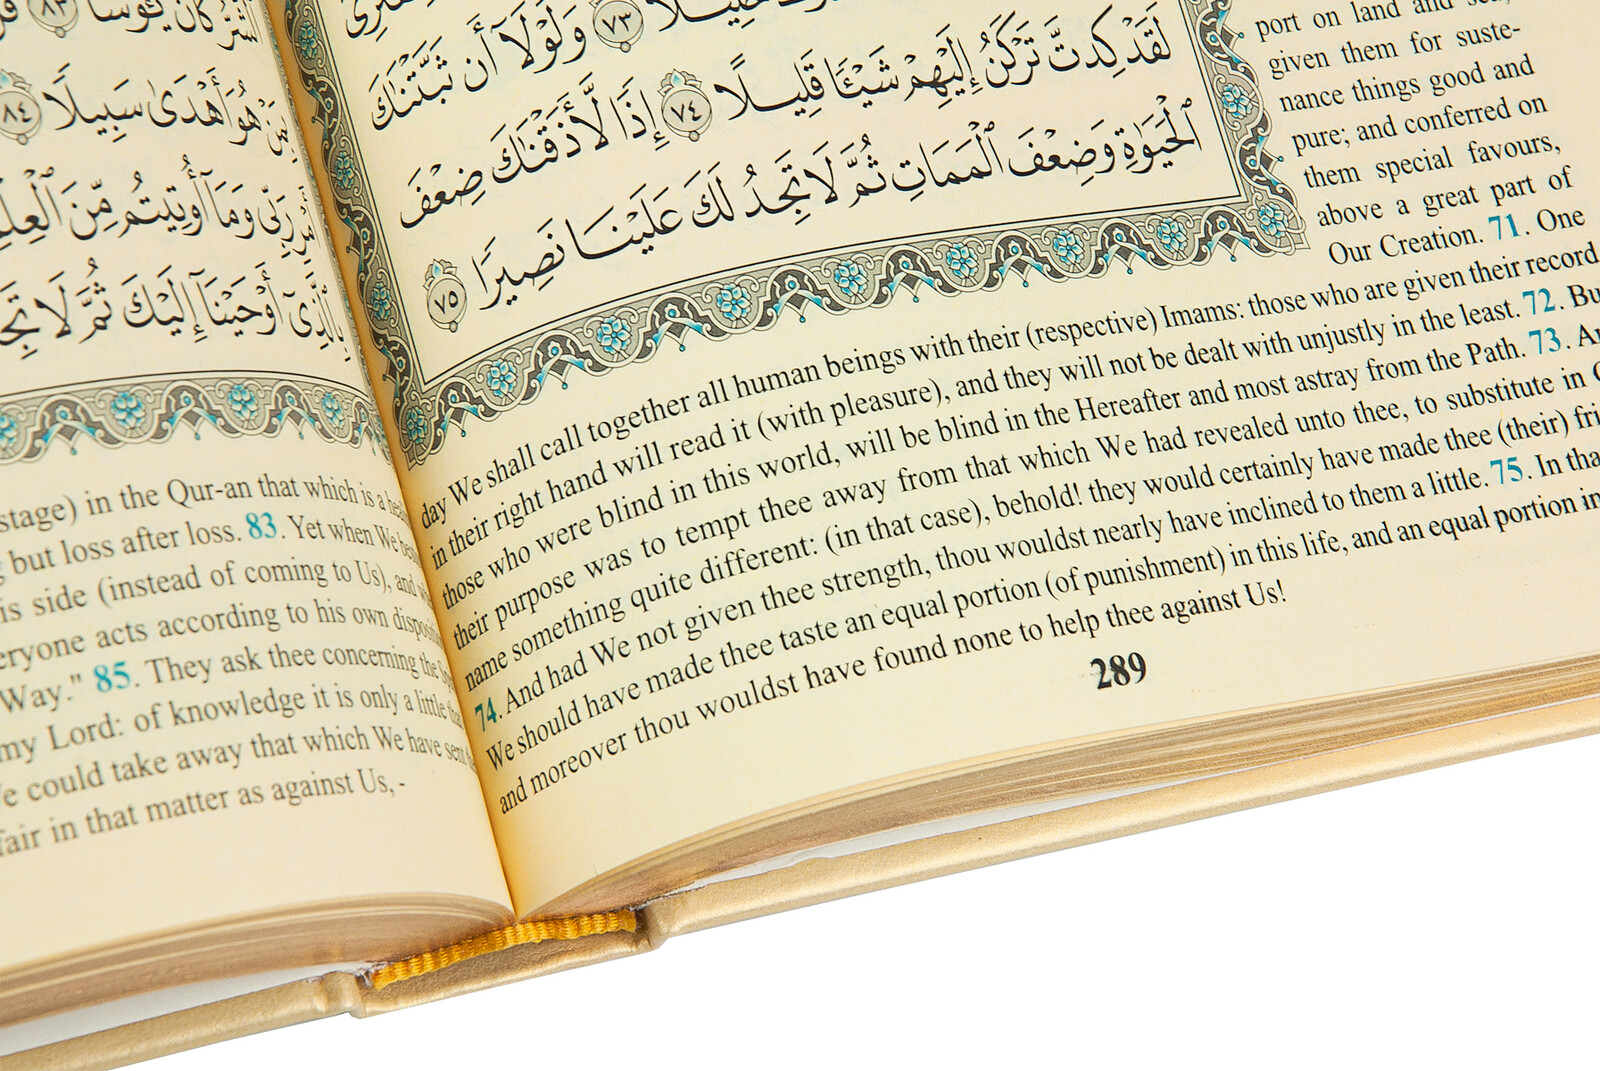 لَقَدْ كِدتَّ تَرْكَنُ إِلَيْهِمْ شَيْـًٔا قَلِيلًا ٧٤ إِذًا لَّأَذَقْنَـٰكَ ضِعْفَ
وَلَوْلَآ أَن ثَبَّتْنَـٰكَ ٧٣
ٱلْحَيَوٰةِ وَضِعْفَ ٱلْمَمَاتِ ثُمَّ لَا تَجِدُ لَكَ عَلَيْنَا نَصِيرًا ٧٥
port on land and
given them for suste-
nance things good and
pure; and conferred on
them special favours,
above a great part of
Our Creation. 71. One
day We shall call together all human beings with their (respective) Imams: those who are given their record
in their right hand will read it (with pleasure), and they will not be dealt with unjustly in the least. 72.
those who were blind in this world, will be blind in the Hereafter and most astray from the Path. 73.
their purpose was to tempt thee away from that which We had revealed unto thee, to substitute in
name something quite different: (in that case), behold! they would certainly have made thee (their)
74. And had We not given thee strength, thou wouldst nearly have inclined to them a little. 75. In
We should have made thee taste an equal portion (of punishment) in this life, and an equal portion in
and moreover thou wouldst have found none to help thee against Us!
289
كَانَ يَـُٔوسًا ٨٣
هُوَ أَهْدَىٰ سَبِيلًا ٨٤
رَبِّى وَمَآ أُوتِيتُم مِّنَ
بِٱلَّذِىٓ أَوْحَيْنَآ إِلَيْكَ ثُمَّ لَا
stage) in the Qur-an that which is a
but loss after loss. 83. Yet when We
side (instead of coming to Us), and
acts according to his own
Way." 85. They ask thee concerning the
my Lord: of knowledge it is only a little
could take away that which We have sent
in that matter as against Us,-